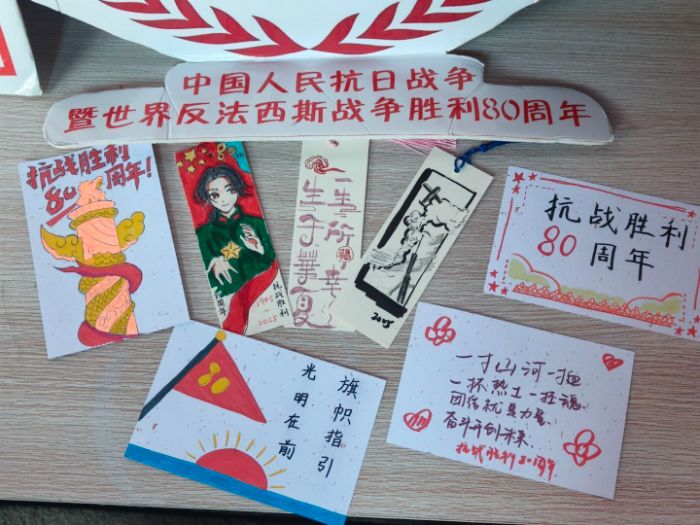 中国人民抗日战争
暨世界反法西斯战争胜利80周年
抗战胜利
80周年!
抗战胜利
周年
1945-2025
一生所幸
生于華夏
2025
抗战胜利
80周年
80
旗帜指引
光明在前
一寸山河一
一杯热土一抔魂、
团结就是力量、
奋斗开创未来、
抗战胜利80周年